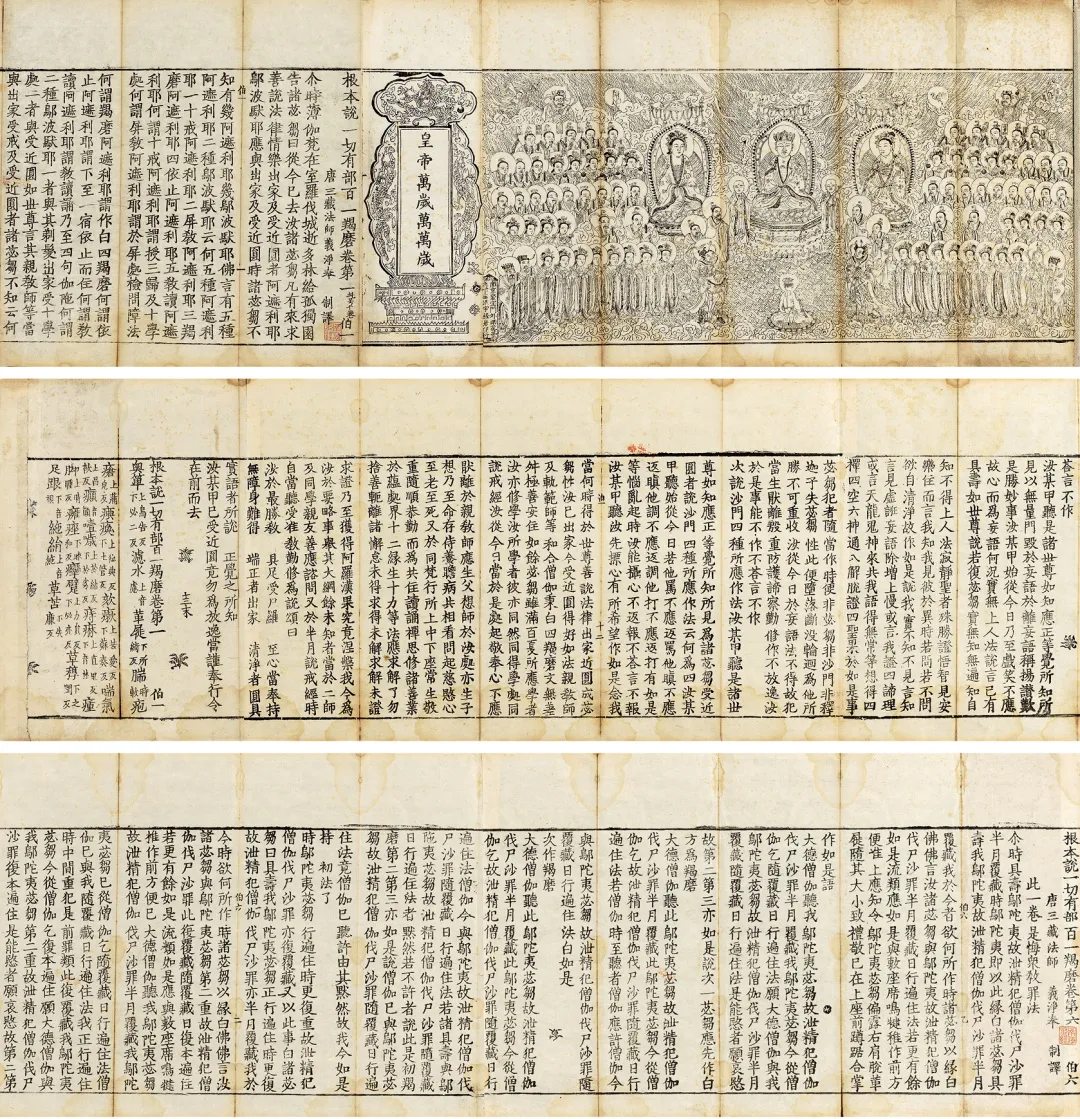 皇帝萬歲萬萬歲
根本說一切有部百一羯磨卷第一 伯一
唐三藏法師義淨奉 制譯
尒時薄伽梵在室羅伐城逝多林給孤獨園
告諸苾芻曰從今已去汝諸苾芻凡有來求
善說法律情樂出家及受近圓者阿遮利耶
鄔波馱耶應與出家及受近圓時諸苾芻不
知有幾阿遮利耶幾鄔波馱耶佛言有五種
阿遮利耶二種鄔波馱耶云何五種阿遮利
耶一十戒阿遮利耶二屏教阿遮利耶三羯
磨阿遮利耶四依止阿遮利耶五教讀阿遮
利耶何謂十戒阿遮利耶謂授三歸及十學
處何謂屏教阿遮利耶謂於屏處檢問障法
何謂羯磨阿遮利耶謂作白四羯磨何謂依
止阿遮利耶謂下至一宿依止而住何謂教
讀阿遮利耶謂教讀誦乃至四句伽陁何謂
二種鄔波馱耶一者與其剃髮出家受十學
處二者與受近圓如世尊言其親教師等當
與出家受戒及受近圓者諸苾芻不知云何
答言不作
汝某甲聽是諸世尊如知應正等覺所知所
見以無量門毀於妄語於離妄語稱揚讚歎
是勝妙事汝某甲始從今日乃至戲笑不應
故心而為妄語何況實無上人法說言已有
具壽如世尊說若復苾芻實無知無遍知自
知不得上人法寂靜聖者殊勝證悟智見安
樂住而言我知我見彼於異時若問若不問
欲自清淨故作如是說我實不知不見言知
言見虛誑妄語除增上慢或言我證四諦理
或言天龍鬼神來共我語得無常等想得四
禪四空六神通八解脫證四聖果於如是事
苾芻犯者隨當作時便非苾芻非沙門非釋
迦子失苾芻性此便墮落斷沒輪迴為他所
勝不可重收汝從今日於妄語法不得故犯
當生厭離殷重防護諦察勤修作不放逸汝
於是事能不作不答言不作
次說沙門四種所應作法汝某甲聽是諸世
尊如知應正等覺所知所見為諸苾芻受近
圓者說沙門四種所應作法云何為四汝某
甲聽始從今日若他罵不應返罵他瞋不應
返瞋他調不應返調他打不應返打有如是
等惱亂起時汝能攝心不返報不答言不報
汝某甲聽汝先摽心有所希望作如是念我
當何時得於世尊善說法律出家近圓成苾
芻性汝已出家今受近圓得好如法親教師
及軌範師等和合僧伽秉白四羯磨文無差
舛極善安住如餘苾芻雖滿百夏所應學者
汝亦修學汝所學者彼亦同然同得學處同
說戒經汝從今日當於是處起敬奉心不應
猒離於親教師應生父想師於汝處亦生子
想乃至命存侍養瞻病共相看問起慈愍心
至老至死又於同梵行所上中下座常生敬
重隨順恭勤而為共住讀誦禪思修諸善業
於蘊處界十二緣生十力等法應求解了勿
捨善軛離諸懈怠未得求得未解求解未證
求證乃至獲得阿羅漢果究竟涅槃我今為
汝於要略事舉其大綱餘未知者當於二師
及同學親友善應諮問又於半月說戒經時
自當聽受准教勤修為說頌曰
汝於最勝教 具足受尸羅 至心當奉持
無障身難得 端正者出家 清淨者圓具
實語者所說 正覺之所知
汝某甲已受近圓竟勿為放逸當謹奉行令
在前而去
根本說一切有部百一羯磨卷第一 伯一
根本說一切有部百一羯磨卷第六 伯六
唐三藏法師 義淨奉 制譯
此一卷是悔眾教罪法
尒時具壽鄔陀夷故泄精犯僧伽伐尸沙罪
半月覆藏時鄔陀夷即以此緣白諸苾芻具
壽我鄔陀夷故泄精犯僧伽伐尸沙罪半月
覆藏我於今者欲何所作時諸苾芻以緣白
佛佛言汝諸苾芻與鄔陀夷苾芻故泄精犯僧伽
伐尸沙罪半月覆藏行遍住法若更有餘
如是流類應如是與敷座席鳴犍稚作前方
便准上應知令鄔陀夷苾芻偏露右肩脫革
屣隨其大小致禮敬已在上座前蹲踞合掌
作如是語
大德僧伽聽我鄔陀夷苾芻故泄精犯僧伽
伐尸沙罪半月覆藏我鄔陀夷苾芻今從僧
伽乞故泄精犯僧伽伐尸沙罪隨覆藏日行遍住法願大德僧伽與我
鄔陀夷苾芻故泄精犯僧伽伐尸沙罪半月
覆藏隨覆藏日行遍住法是能愍者願哀愍
故第二第三亦如是說次一苾芻應先作白
方為羯磨
大德僧伽聽此鄔陀夷苾芻故泄精犯僧伽
伐尸沙罪半月覆藏此鄔陀夷苾芻今從僧
伽乞故泄精犯僧伽伐尸沙罪隨覆藏日行
遍住法若僧伽時至聽者僧伽應許僧伽今
與鄔陀夷苾芻故泄精犯僧伽伐尸沙罪隨
覆藏日行遍住法白如是
次作羯磨
大德僧伽聽此鄔陀夷苾芻故泄精犯僧伽
伐尸沙罪半月覆藏此鄔陀夷苾芻今從僧
伽乞故泄精犯僧伽伐尸沙罪隨覆藏日行
遍住法僧伽今與鄔陀夷故泄精犯僧伽伐
尸沙罪隨覆藏日行遍住法若諸具壽與鄔
陀夷苾芻故泄精犯僧伽伐尸沙罪隨覆藏
日行遍住法者默然若不許者說此是初羯
磨第二第三亦如是說僧伽已與鄔陀夷苾
芻故泄精犯僧伽伐尸沙罪隨覆藏日行遍
住法竟僧伽已聽許由其默然故我今如是
持 初法了
時鄔陀夷苾芻行遍住時更復重故泄精犯
僧伽伐尸沙罪亦復覆藏又以此事白諸苾
芻曰具壽我鄔陀夷苾芻正行遍住時更復
故泄精犯僧伽伐尸沙罪亦半月覆藏我於
今時欲何所作時諸苾芻以緣白佛佛言汝
諸苾芻與鄔陀夷苾芻第二重故泄精犯僧
伽伐尸沙罪復覆藏隨覆藏日復本遍住法
若更有餘如是流類如是應與敷座席鳴犍
椎作前方便已大德僧伽聽我鄔陀夷苾芻
故泄精犯僧伽伐尸沙罪半月覆藏我鄔陀
夷苾芻已從僧伽乞隨覆藏日行遍住法僧
伽已與我隨覆藏日行遍住法我正行遍住
時中間重犯是前罪類此復覆藏我鄔陀夷
苾芻今從僧伽乞復本遍住願大德僧伽與
我鄔陀夷苾芻第二重故泄精犯僧伽伐尸
沙罪復本遍住是能愍者願哀愍故第二第